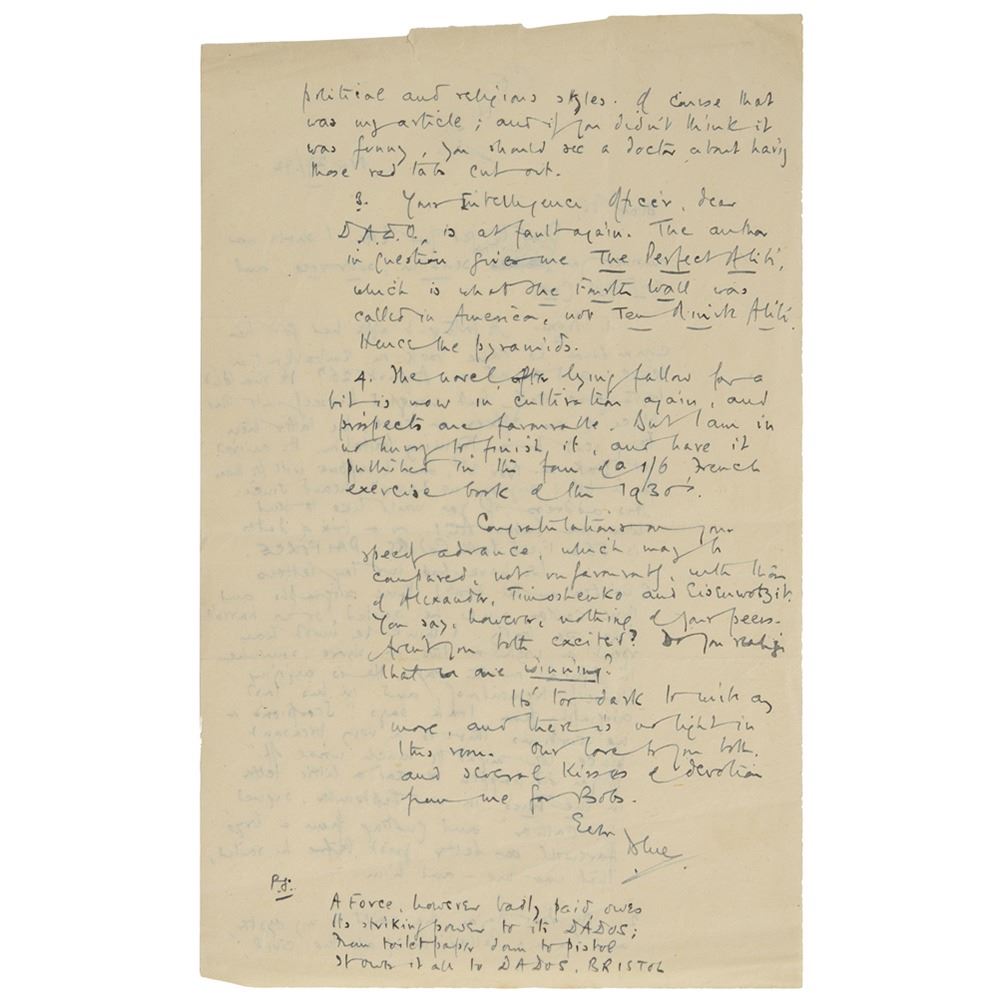 political and religious styles. Of course that
was my article; and if you didn't think it
was funny, you should see a doctor about having
those red tabs cut out.
3. Your Intelligence Officer, dear
D.A.D.O., is at fault again. The author
in question gives me The Perfect Alibi,
which is what The Fourth Wall was
called in America, not Ten Minute Alibi.
Hence the pyramids.
4. The novel, after lying fallow for a
bit is now in cultivation again, and
prospects are favourable. But I am in
no hurry to finish it, and have it
published in the form of a 1/6 French
exercise book of the 1930's.
Congratulations on your
speedy advance, which may be
compared, not unfavourably, with those
of Alexander, Timoshenko and Eisenwotzit.
You say, however, nothing of your peers.
Aren't you both excited? Do you realize
that we are winning?
It's too dark to write any
more, and there is no light in
this room. Our love to you both,
and several kisses of devotion
from me for Bobs.
Ever
Blue
P.S.
A Force, however badly paid, owes
Its striking power to its DADOS;
From toilet paper down to pistol
It owes it all to DADOS, BRISTOL